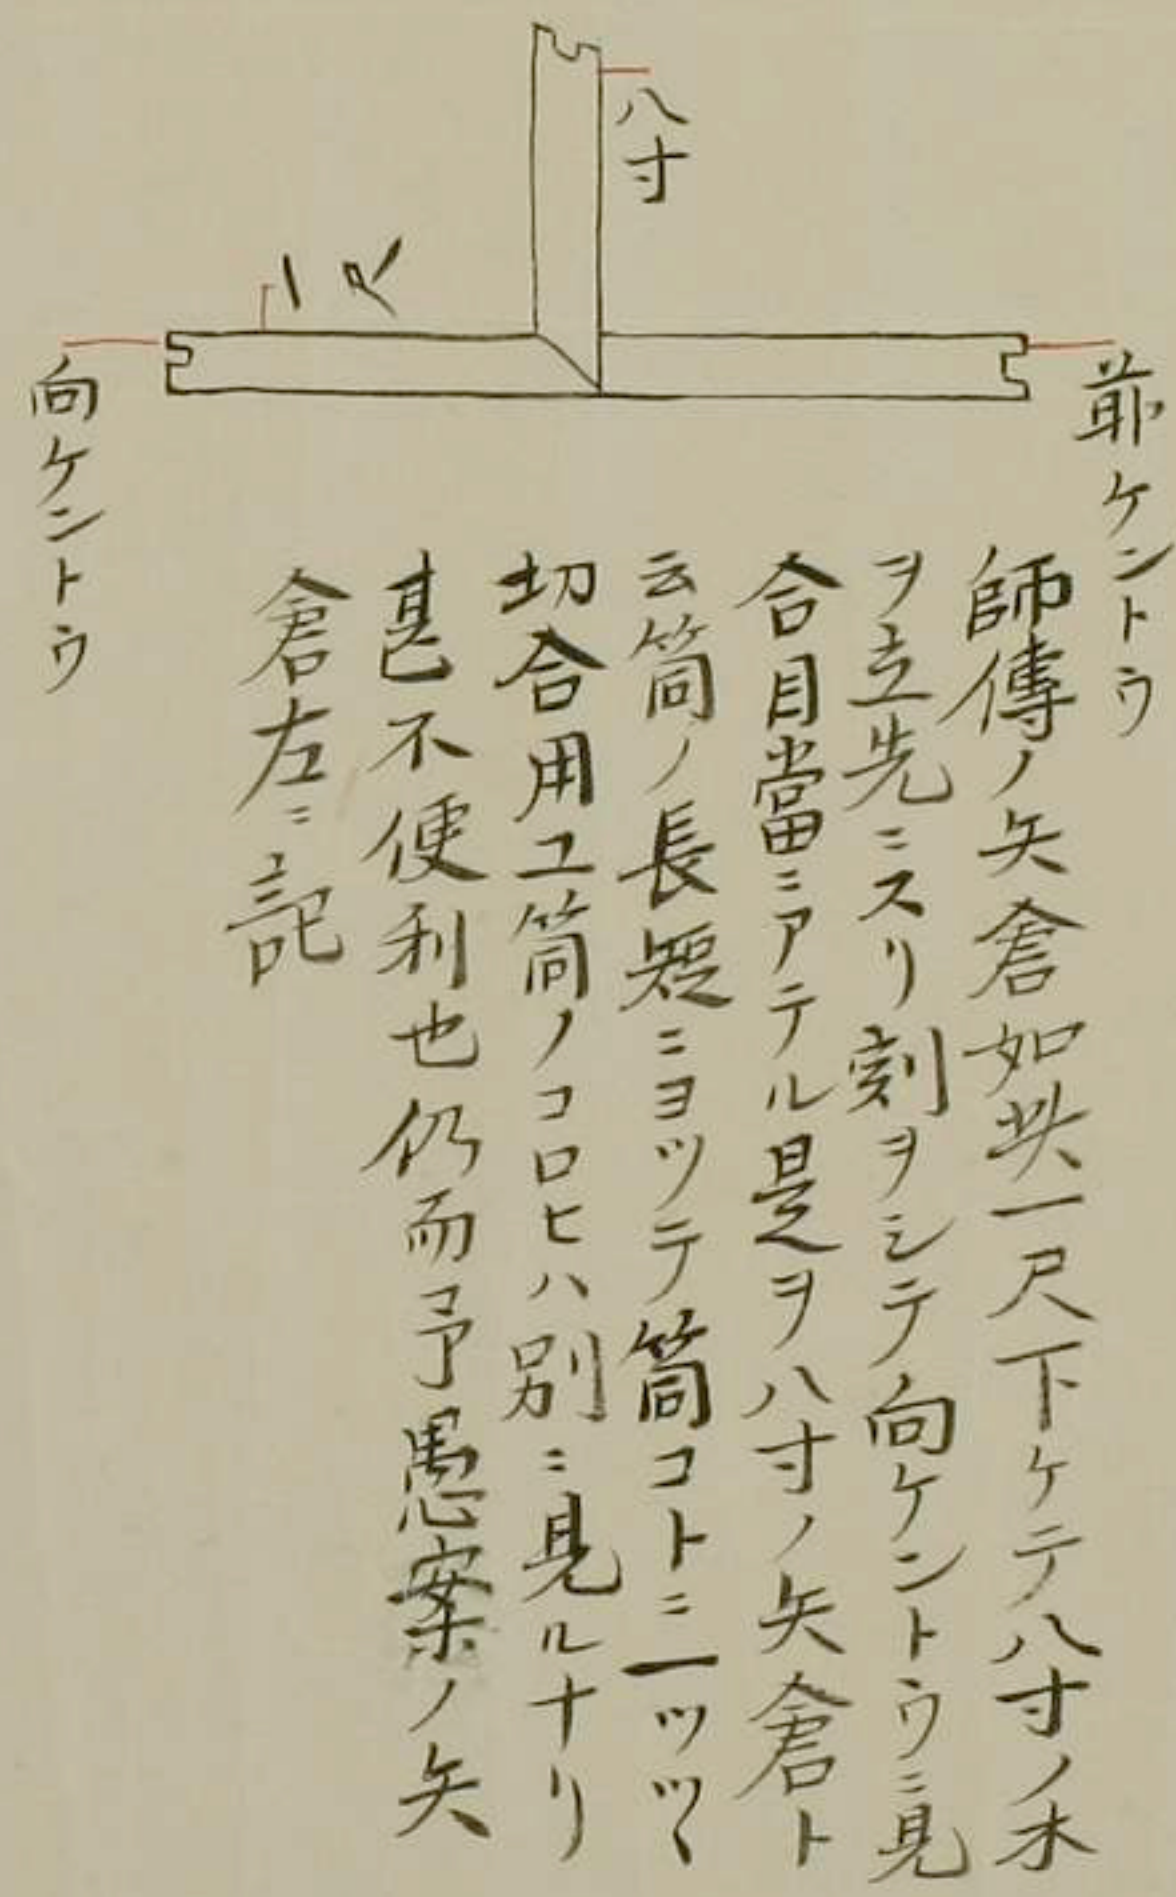 八寸
一尺
前ケントウ
向ケントウ
師傳ノ矢倉如此一尺下ケテ八寸ノ木
ヲ立先ニスリ割ヲシテ向ケントウニ見
合目當ニアテル是ヲ八寸ノ矢倉ト
云筒ノ長短ニヨツテ筒コトニ一ツツヽ
切合用ユ筒ノコロヒハ別ニ見ルナリ
甚不便利也仍而予愚案ノ矢
倉左ニ記